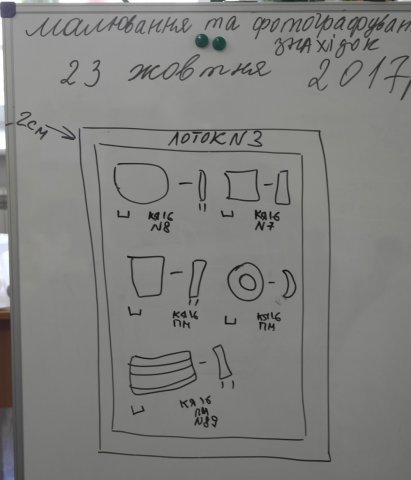 малювання та фотографуван
знахідок
23 жовтня 2017
2см
ЛОТОК N3
КЯ16
N8
КЯ16
N7
КЯ16
ПМ
КЯ16
ПМ
КЯ16
ПМ
N89